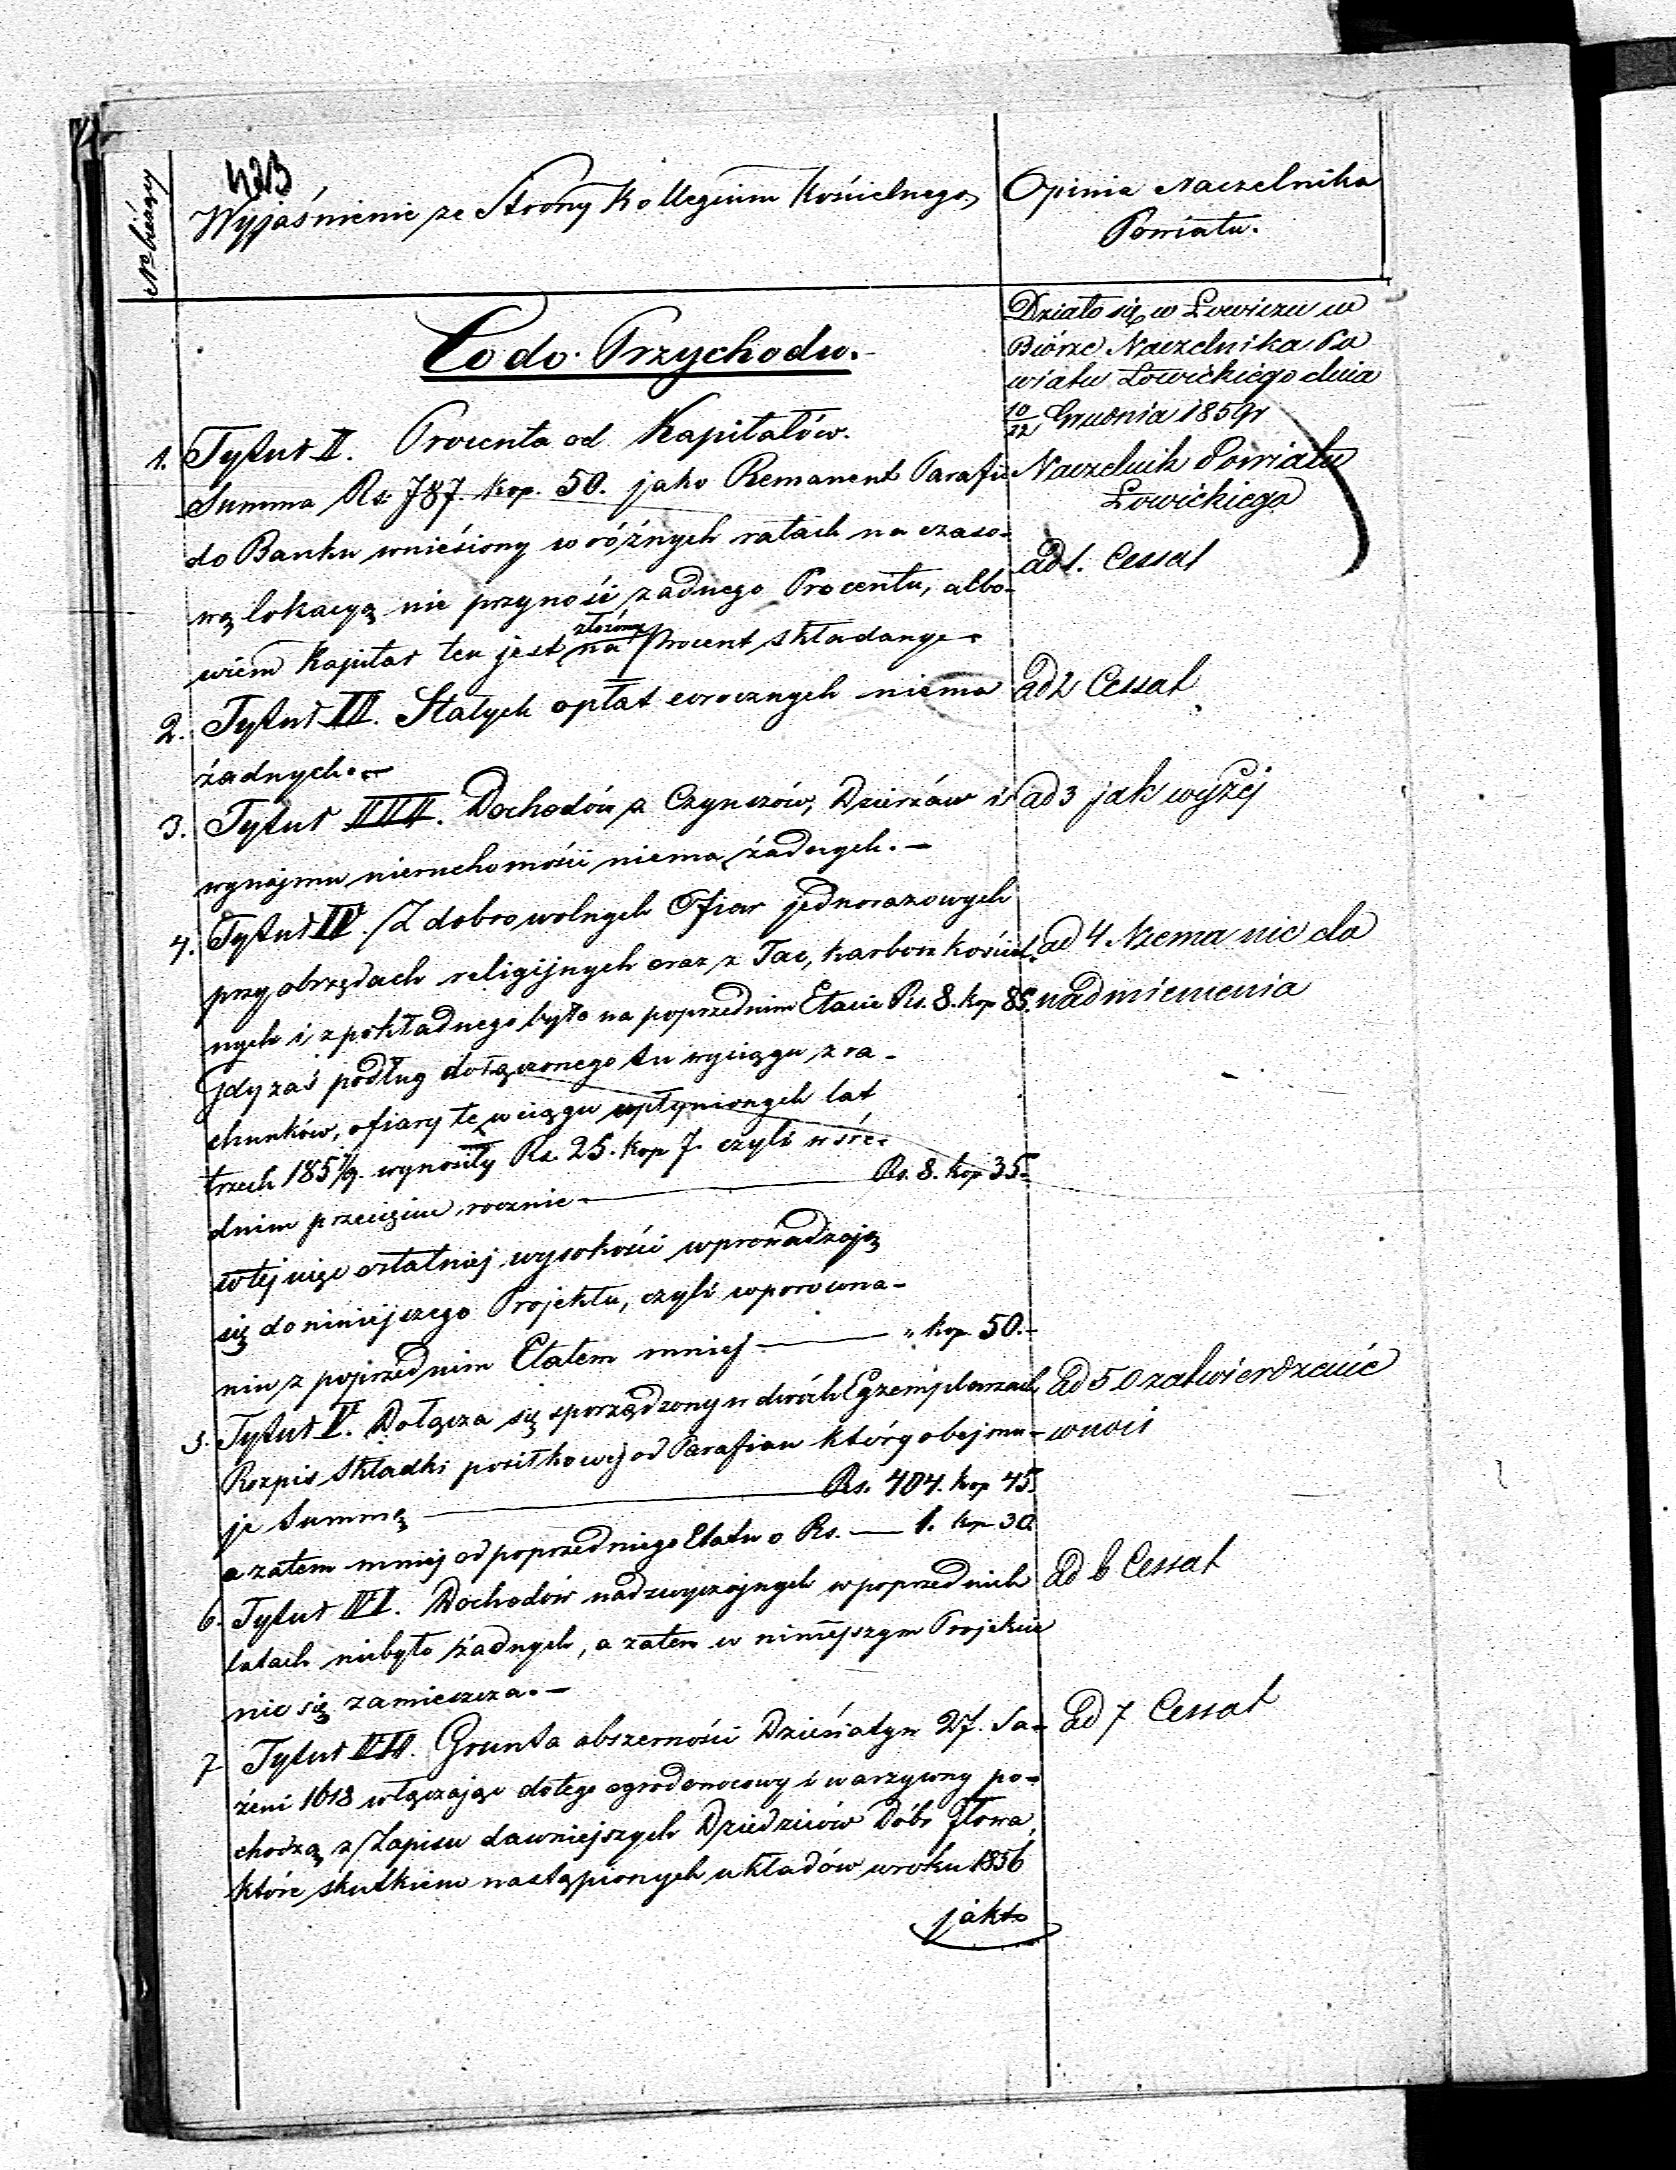 423
No bieżący
Wyjaśnienie ze Strony Kollegium Kościelnego
Opinia Naczelnika
Powiatu.
Co do Przychodu.
1. Tytuł I. Procenta od Kapitałów.
Summa Rs. 787. kop. 50. jako Remanent Parafii
do Banku wniesiony w różnych ratach na czaso-
wą lokacyą nie przynosi żadnego Procentu, albo-
wiem Kapitał ten jest złożony na Procent składany.
2. Tytuł II. Stałych opłat corocznych niema
żadnych.
3. Tytuł III. Dochodów z Czynszów, Dzierżaw i
wynajmu nieruchomości niema żadnych.
4. Tytuł IV. Z dobrowolnych Ofiar jednorazowych
przy obrzędach religijnych oraz z Tac, karbon kościel-
nych i z pokładnego było na poprzednim Etacie Rs. 8. kop 85.
Gdy zaś podług dołączonego tu wyciągu z ra-
chunków, ofiary te w ciągu upłynionych lat
trzech 1857/9. wynosiły Rs. 25. kop 7. czyli w śre-
dnim przecięciu rocznie Rs. 8. kop 35.
w tej więc ostatniej wysokości wprowadzają
się do niniejszego Projektu, czyli w porówna-
niu z poprzednim Etatem mniej „ kop 50.
5. Tytuł V. Dołącza się sporządzony w dwóch Egzemplarzach
Rozpis Składki posiłkowej od Parafian który obejmu-
je Summę Rs. 404. kop 45.
a zatem mniej od poprzedniego Etatu o Rs. 1. kop 30.
6. Tytuł VI. Dochodów nadzwyczajnych w poprzednich
latach niebyło żadnych, a zatem w niniejszym Projekcie
nic się zamieszcza.
7. Tytuł VII. Grunta obszerności Dziesiatyn 27. Sa-
żeni 1618 włączając do tego ogrod owocowy i warzywny po-
chodzą z Zapisu dawniejszych Dziedziców Dóbr Iłowa,
które skutkiem nastąpionych układów w roku 1856
jakto
Działo się w Łowiczu w
Biórze Naczelnika Po
wiatu Łowickiego dnia
10/22 Grudnia 1859 r
Naczelnik Powiatu
Łowickiego
ad 1. Cessat
ad 2 Cessat
ad 3 jak wyżej
ad 4 Niema nic do
nadmienienia
ad 5 O zatwierdzenie
wnosi
ad 6 Cessat
ad 7 Cessat